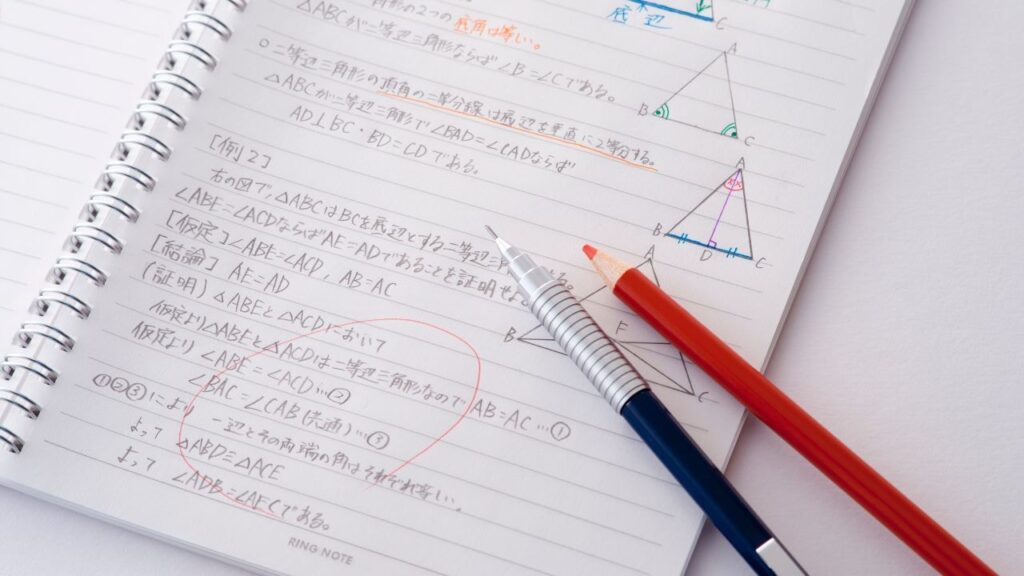 底辺 C
角形の2つの底角は等しい。
△ABCが二等辺三角形ならば∠B=∠Cである。
○二等辺三角形の頂角の二等分線は底辺を垂直に2等分する。
△ABCが二等辺三角形で∠BAD=∠CADならば
AD⊥BC・BD=CDである。
[例2]
右の図で,△ABCはBCを底辺とする二等辺三
∠ABE=∠ACDならばAE=ADであることを証明せよ
[仮定]∠ABE=∠ACD, AB=AC
[結論] AE=AD
(証明)△ABEと△ACDにおいて
仮定より△ABEと△ACDは二等辺三角形なので AB=AC…①
仮定より ∠ABE=∠ACD…②
∠BAC=∠CAB(共通)…③
①②③により 一辺とその両端の角はそれぞれ等しい。
よって △ABD≡△ACE
よって ∠ADB=∠AECである。
A
B
C
A
B
D
C
A
B
F
C
RING NOTE